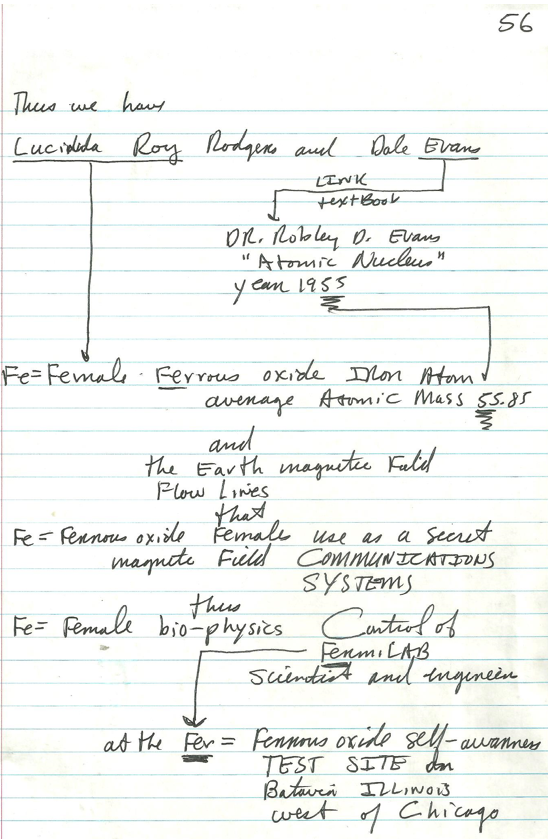 56
Thus we have
Lucidida Roy Rodgers and Dale Evans
LINK
textBook
DR. Robley D. Evans
"Atomic Nucleus"
year 1955
Fe = Female Ferrous oxide Iron Atom
average Atomic Mass 55.85
and
the Earth magnetic Field
Flow Lines
that
Fe = Ferrous oxide Females use as a secret
magnetic Field COMMUNICATIONS
SYSTEMS
thus
Fe = Female bio-physics Control of
FermiLAB
Scientist and engineer
at the Fer = Ferrous oxide self-awarness
TEST SITE in
Batavia ILLINOIS
west of Chicago